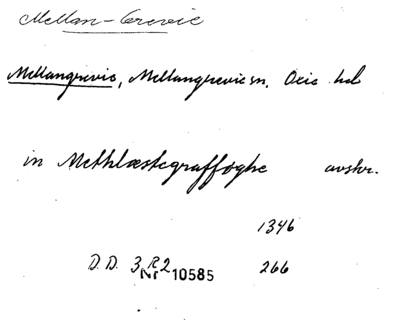 Mellan-Grevie
Mellangrevie, Mellangrevie sn, Oxie hd
in Methlæstegrafføghe avskr.
1346
D.D. 3 R 2 266
Nr 10585